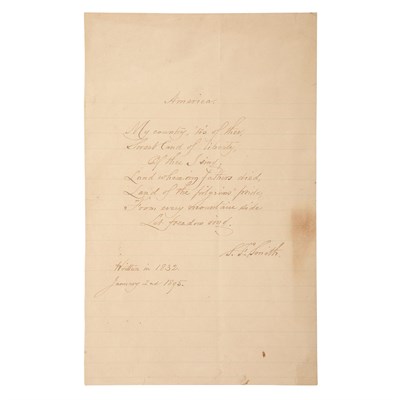 America.
My country, 'tis of thee,
Sweet land of liberty,
Of thee I sing;
Land where my fathers died,
Land of the pilgrims' pride,
From every mountain side
Let freedom ring.
S. F. Smith.
Written in 1832.
January 2nd 1895.